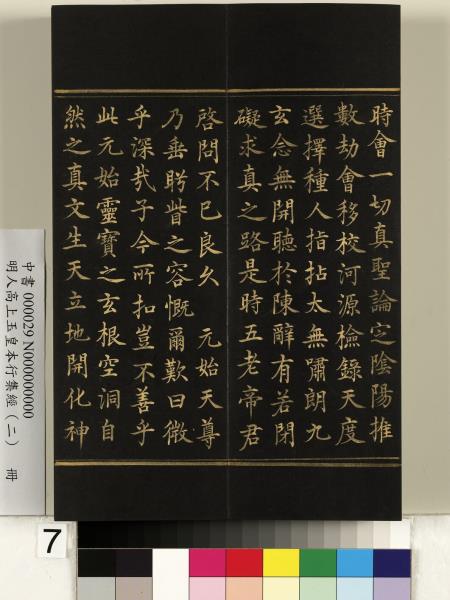 時會一切真聖論定陰陽推
數劫會移校河源檢錄天度
選擇種人指拈太無肅朗九
玄念無開聽於陳辭有若閉
礙求真之路是時五老帝君
啓問不已良久　元始天尊
乃垂眄眥之容慨爾歎曰微
乎深哉子今所扣豈不善乎
此元始靈寶之玄根空洞自
然之真文生天立地開化神
中書 000029 N000000000
明人高上玉皇本行集經（二）　冊
7